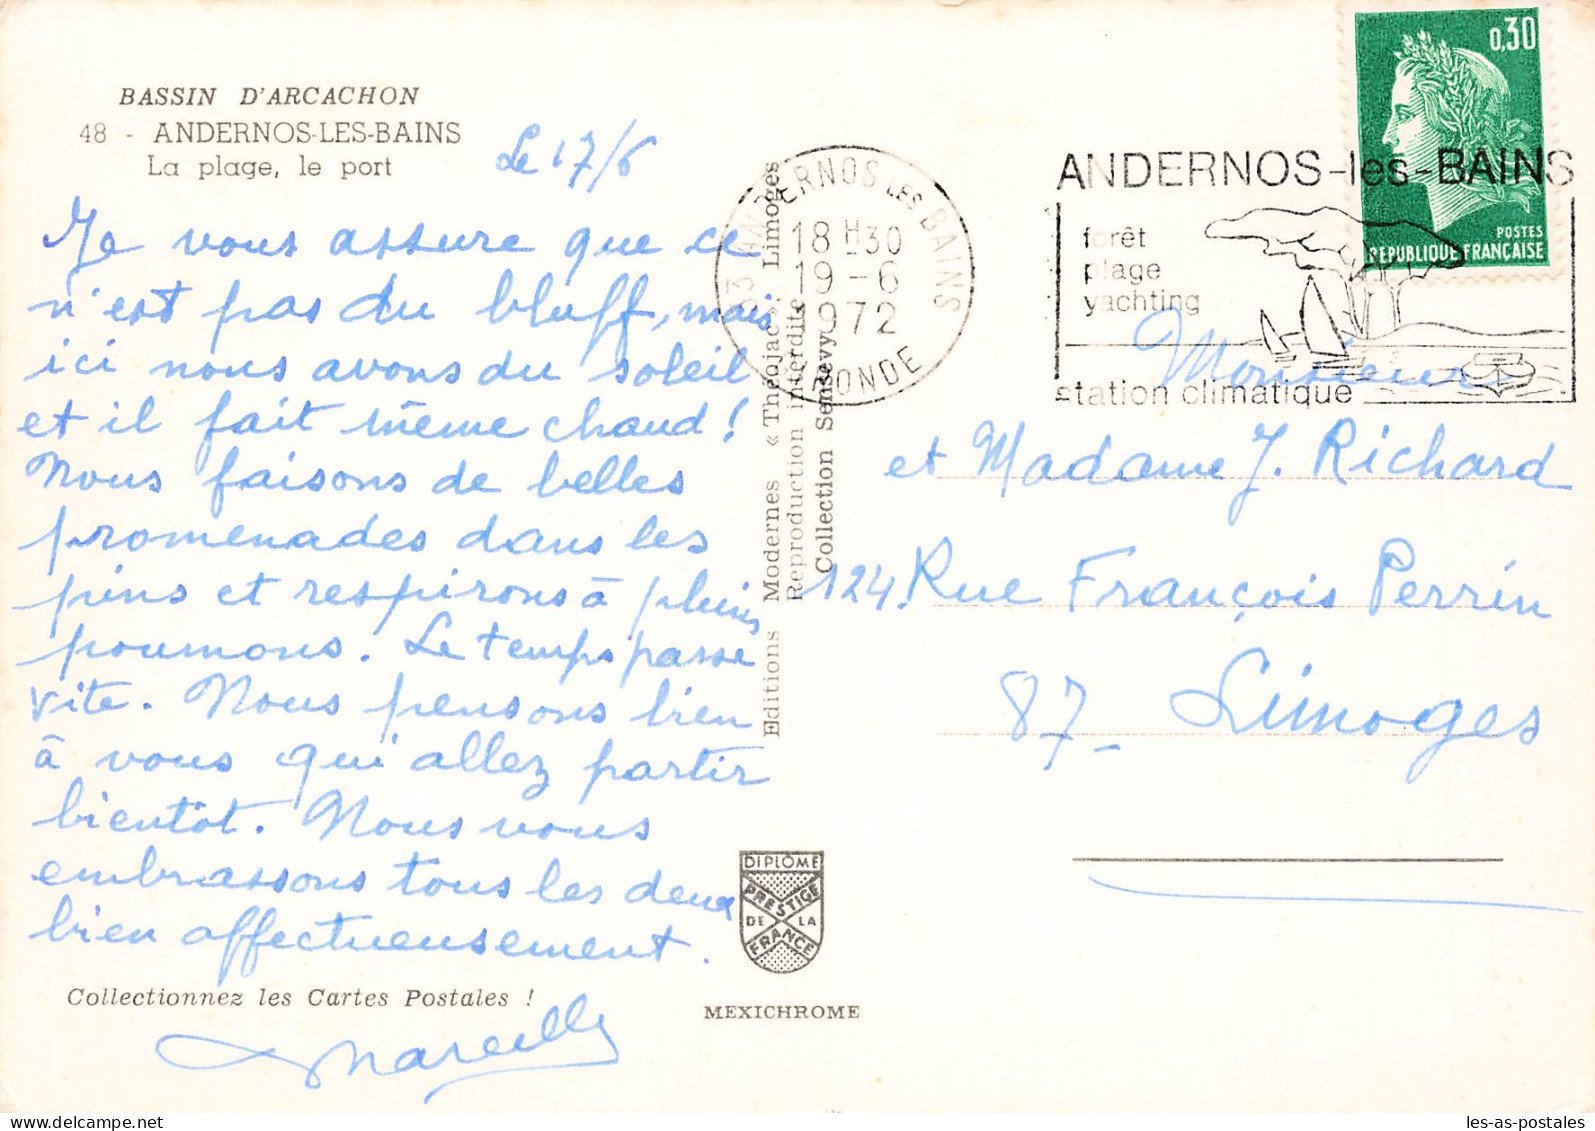 BASSIN D'ARCACHON
48 - ANDERNOS-LES-BAINS
La plage, le port
Le 17/6
Je vous assure que ce
n'est pas du bluff, mais
ici nous avons du soleil
et il fait même chaud !
Nous faisons de belles
promenades dans les
pins et respirons à pleins
poumons. Le temps passe
vite. Nous pensons bien
à vous qui allez partir
bientôt. Nous vous
embrassons tous les deux
bien affectueusement.
Collectionnez les Cartes Postales !
Editions Modernes « Théojac », Limoges
Reproduction interdite
Collection Sensevy
DIPLÔME
PRESTIGE
DE LA
FRANCE
MEXICHROME
33 ANDERNOS LES BAINS
18 H 30
19 - 6
1972
GIRONDE
ANDERNOS-les-BAINS
forêt
plage
yachting
station climatique
0,30
POSTES
REPUBLIQUE FRANÇAISE
Monsieur
et Madame J. Richard
124. Rue François Perrin
87 - Limoges
les-as-postales